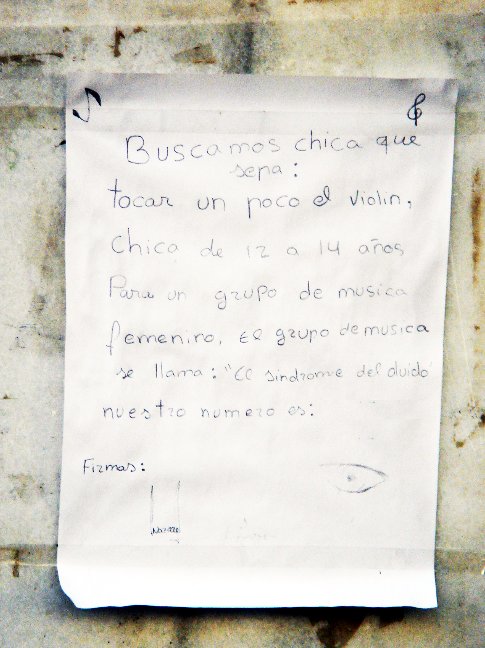 Buscamos chica que
sepa:
tocar un poco el violin,
chica de 12 a 14 años
Para un grupo de musica
femenino, El grupo de musica
se llama: "El sindrome del
nuestro numero es:
Firmas: